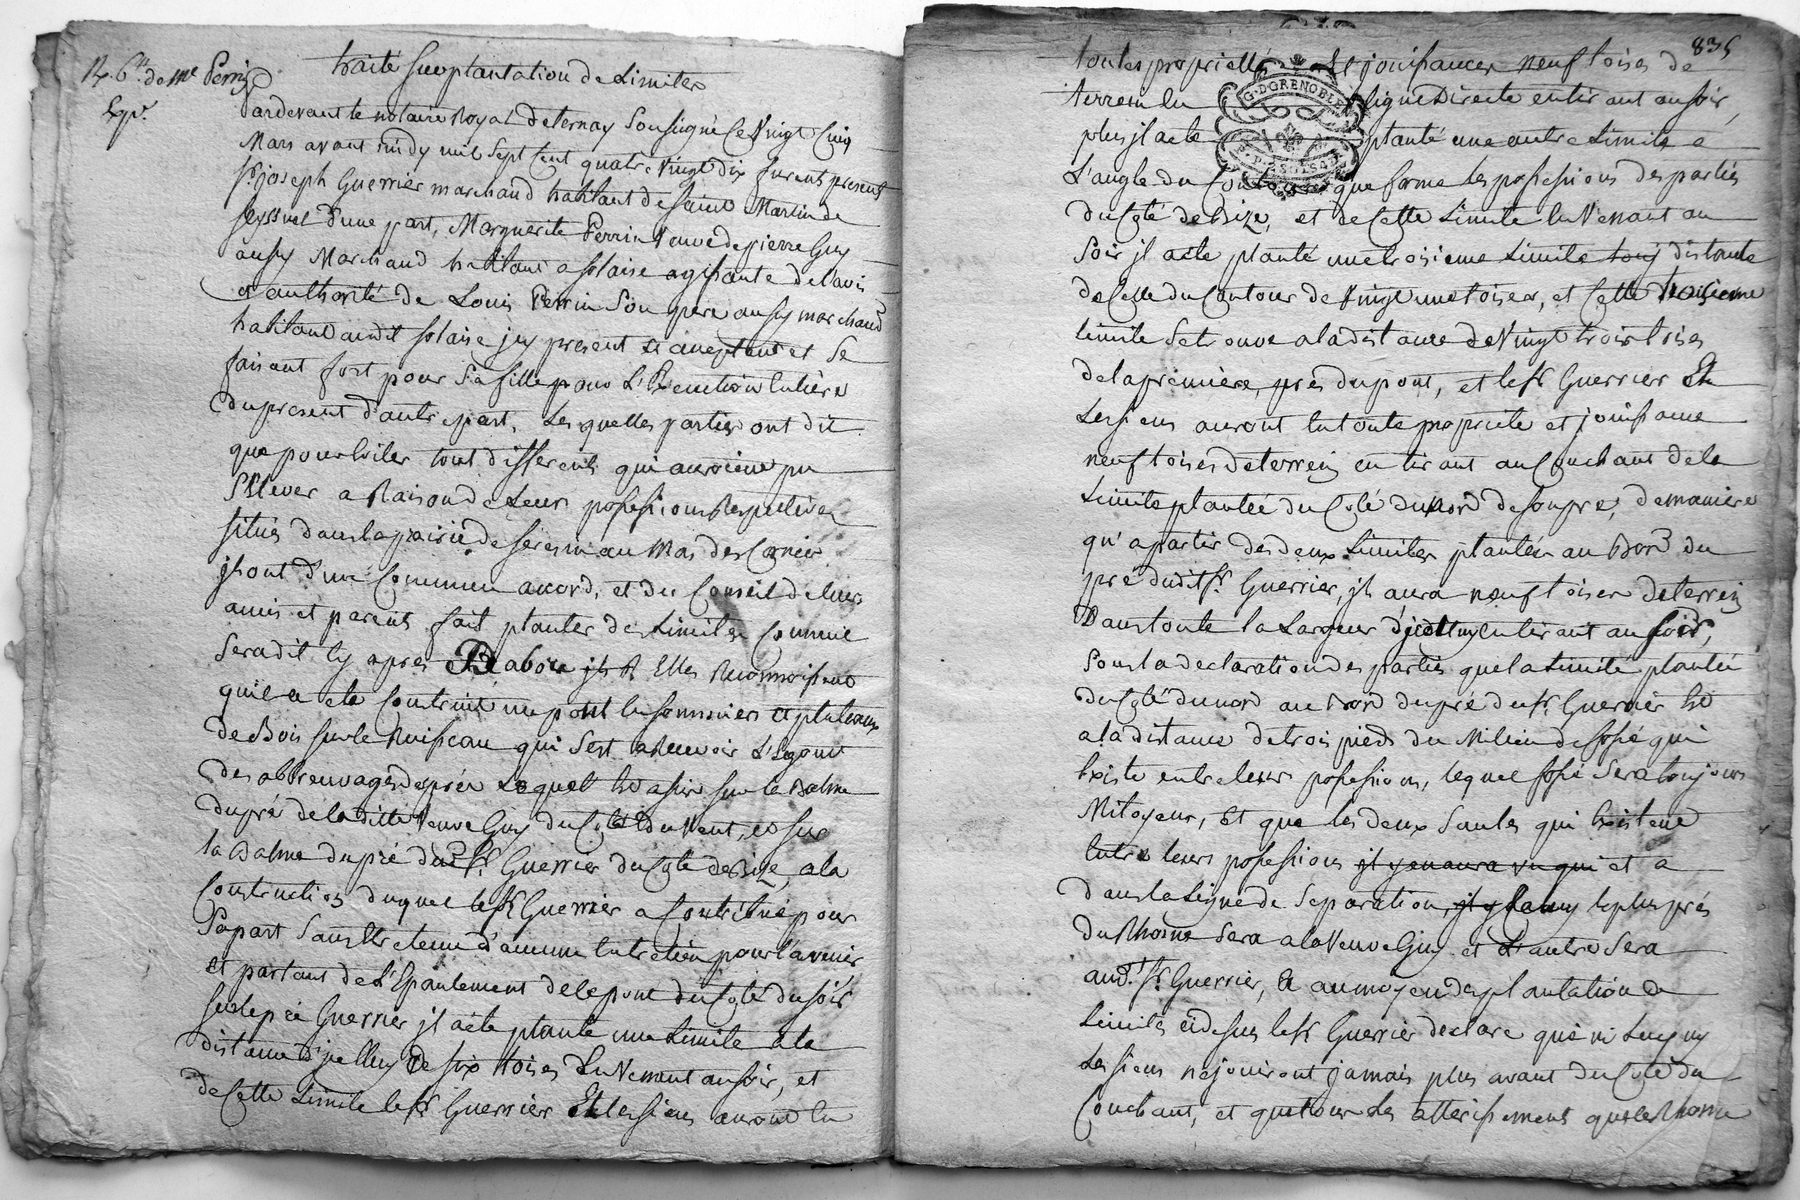 traité sur plantation de Limites
de Me Perrin
Exp.
Pardevant le notaire Royal de ternay soussigné ce vingt cinq
Mars avant midy mil sept cent quatre vingt dix furent present
sr. joseph Guerrier marchand habitant de saint Martin de
seyssuel d'une part, Marguerite Perrin veuve de pierre Guy
aussy Marchand habitant a solaise agissante de l'avis
et authorité de Louis Perrin son pere aussy marchand
habitant audit solaise icy present et acceptant et se
faisant fort pour sa fille pour L'Execution entière
du present d'autre part, Les quelles parties ont dit
que pour Eviter tout different qui auroient pu
s'Elever a Raison de Leurs possessions Respectives
situés dans la prairie de seresin au Mas des
jls ont d'un Commun accord, et du Conseil de leurs
amis et parents fait planter des Limites Comme
sera dit Cy apres D'abord jls & Elles Reconnoissent
qu'il a ete Construit un pont En sommiers et plateaux
de Bois sur le Ruisseau qui sert a Recevoir L'Egout
des abbreuvages des prés Lequel Est assis sur la Balme
du pré de la ditte veuve Guy du Coté du Vent, et sur
la Balme du pré du sr. Guerrier du Coté de Bize, a la
Construction duquel le sr Guerrier a Contribué pour
sa part sans Etre tenu d'aucune Entretien pour l'avenir
Et partant de L'Epaulement de ce pont du Coté du soir
sur le pré Guerrier jl a été planté une Limite a la
distance d'jcelluy de six toises En Venant au soir, et
de Cette Limite le sr Guerrier Et les siens auront En
835
toutes proprieté Et jouissances neuf toises de
terrein En ligne Directe en tirant au soir,
G. D GRENOBLE
plus jl a ete planté une autre Limite a
L'angle du Contour que forme Les possessions des parties
du Coté de Bize, et de Cette Limite En Venant au
soir jl a ete planté une troisieme Limite distante
de Celle du Contour de Vingt une toises, et Cette troisieme
Limite se trouve a la distance de Vingt trois toises
de la première, près du pont, et le sr Guerrier Et
Les siens auront En toute propriete et jouissance
neuf toises de terrein en tirant au Couchant de la
Limite plantée du Coté du Nord de son pré, de maniere
qu'a partir des deux Limites plantées au Bord du
pré dudit sr. Guerrier, jl aura neuf toises de terrein
Dans toute la Largeur d'jcelluy En tirant au soir,
sous la declaration des parties que la Limite plantée
du Coté du nord au Bord du pré du sr. Guerrier Est
a la distance de trois pieds du Milieu de fossé qui
Existe entre leurs possessions, lequel fossé sera toujours
Mitoyen, Et que les deux saules qui Existent
Entre leurs possessions jl y en aura un qui et a
dans la Ligne de separation, le plus près
du Rhosne sera a la Veuve Guy et L'autre sera
aud. sr. Guerrier, Et au moyen des plantation de
Limites cidesus le sr Guerrier declare que ni Luy ny
Les siens ne jouiront jamais plus avant du Coté du
Couchant, et que tous Les atterissements que le Rhosne